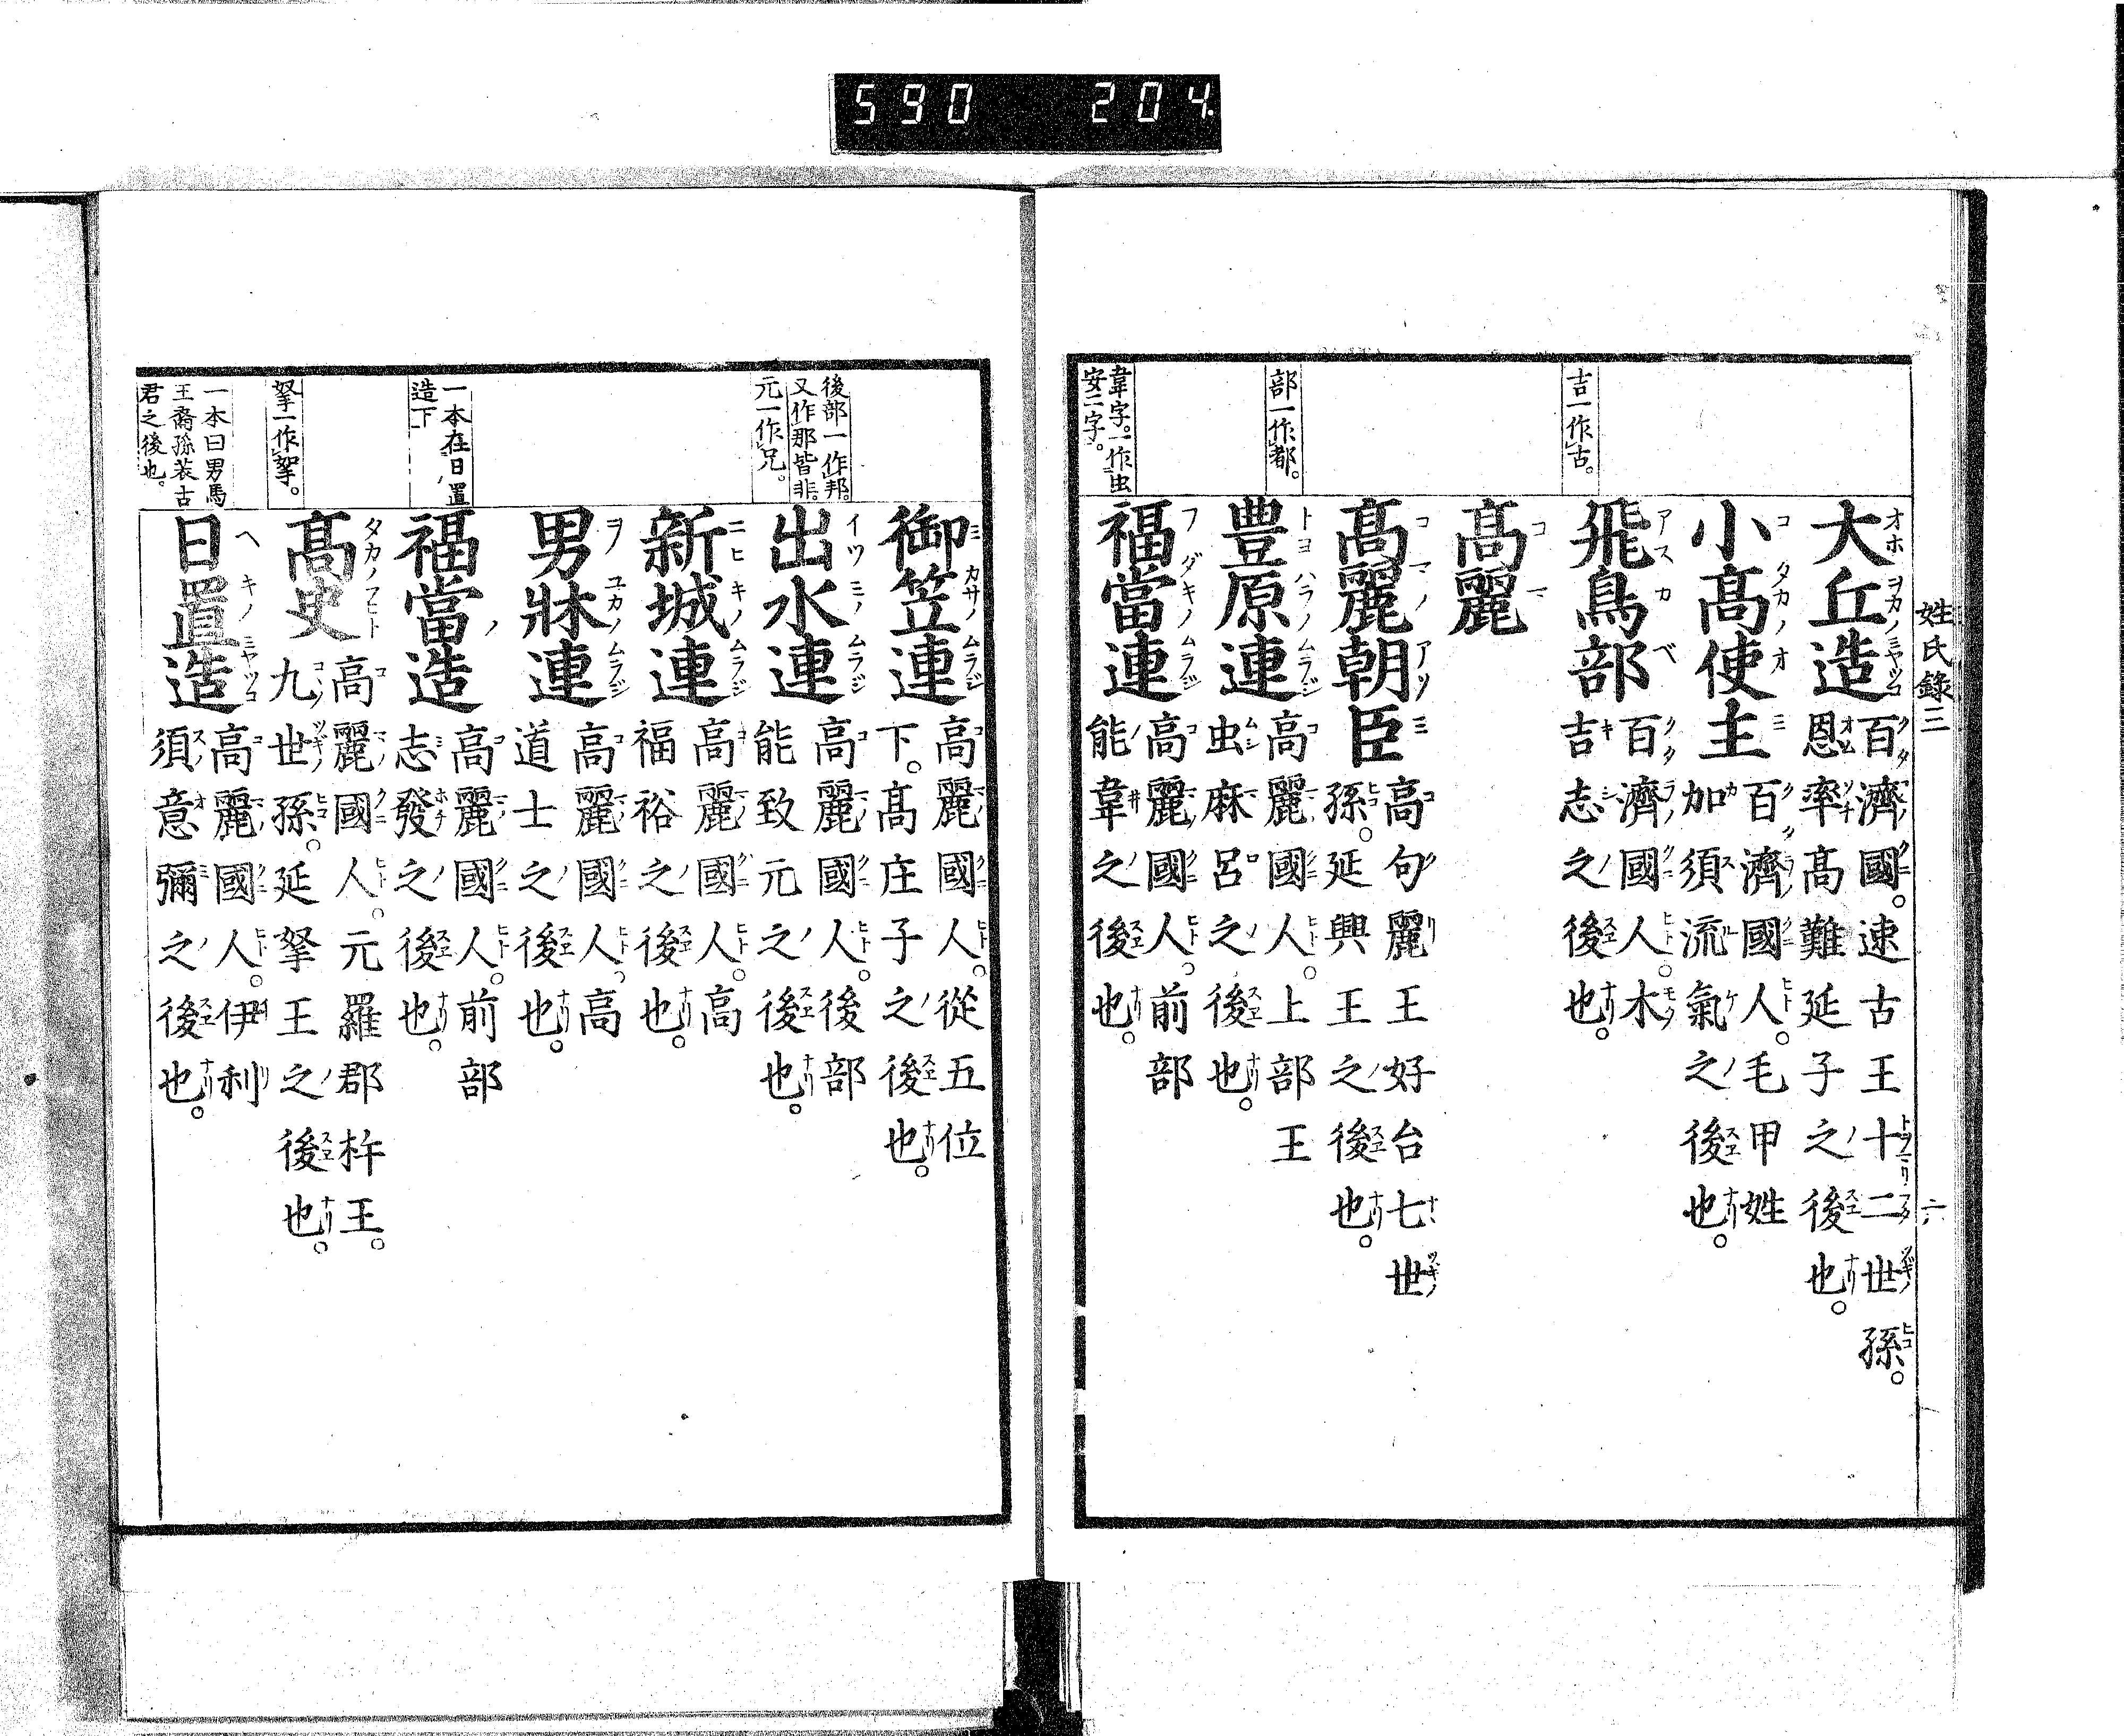 590 204
姓氏錄三 六
吉一作古。
部一作都。
韋字。一作虫
安二字。
大丘造
百濟國。速古王十二世孫。
恩率高難延子之後也。
小髙使主
百濟國人。毛甲姓
加須流氣之後也。
飛鳥部
百濟國人。木
吉志之後也。
髙麗
髙麗朝臣
高句麗王好台七世
孫。延興王之後也。
豊原連
高麗國人。上部王
虫麻呂之後也。
福當連
高麗國人。前部
能韋之後也。
後部一作邦。
又作那皆非。
元一作兄。
一本在日置
造下
拏一作挐。
一本曰男馬
王裔孫装古
君之後也。
御笠連
高麗國人。從五位
下。髙庄子之後也。
出水連
高麗國人。後部
能致元之後也。
新城連
高麗國人。高
福裕之後也。
男牀連
高麗國人。高
道士之後也。
福當造
高麗國人。前部
志發之後也。
髙史
高麗國人。元羅郡杵王。
九世孫。延拏王之後也。
日置造
高麗國人。伊利
須意彌之後也。